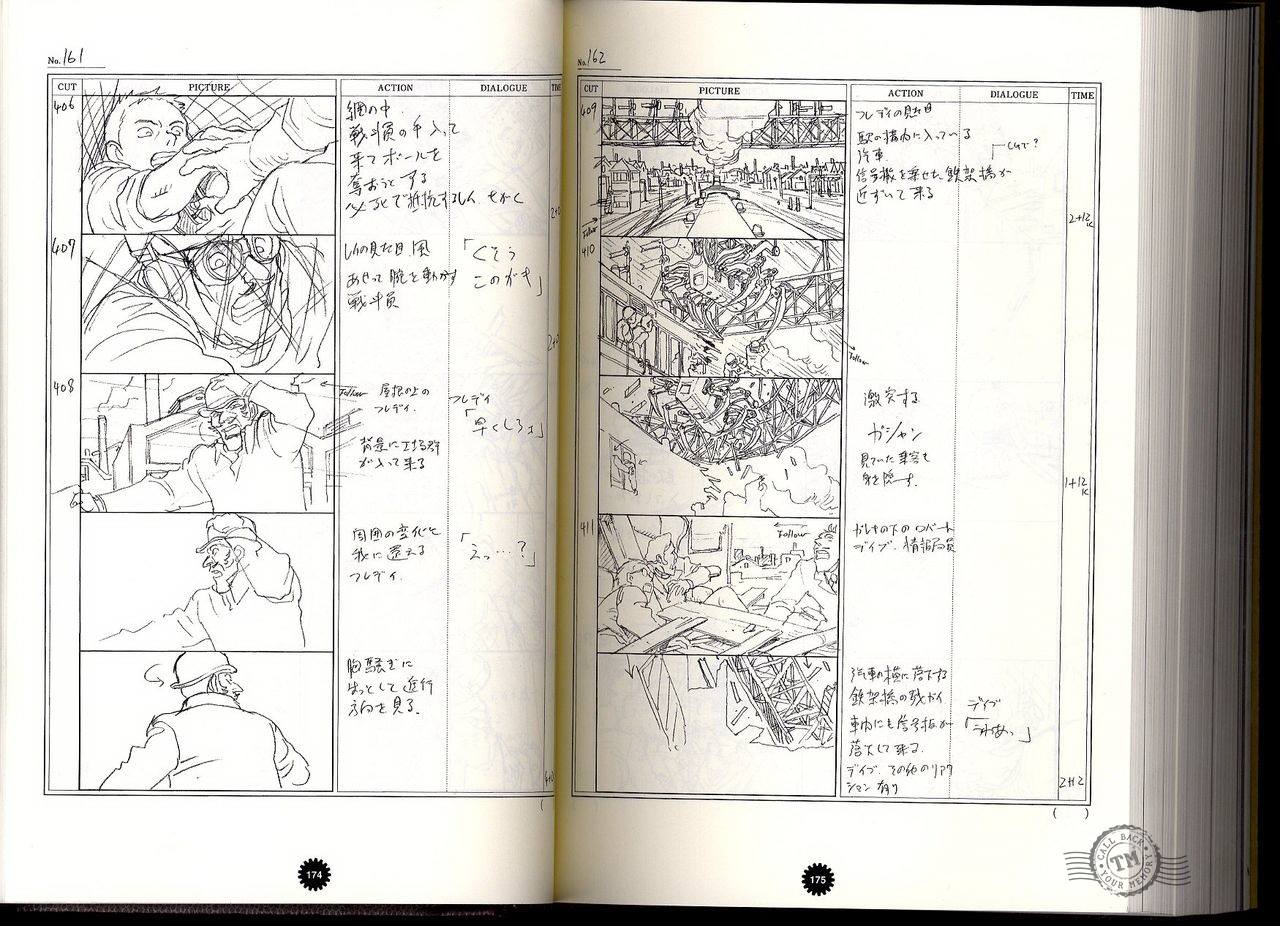 No. 161
CUT PICTURE ACTION DIALOGUE TIME
406
網の中
戦斗員の手入って
来てボールを
奪おうとする
必死で抵抗する
407
の見た目風
あせって腕を動かす
戦斗員
「くそう
このガキ」
408
Follow
屋根の上の
フレディ.
背景に工場群
が入って来る
フレディ
「早くしろ
周囲の変化と
我に還える
フレディ.
「えっ…?」
胸騒ぎに
はっとして進行
方向を見る.
174
No. 162
CUT PICTURE ACTION DIALOGUE TIME
409
フレディの見た目
駅の構内に入っている
汽車
CGで?
信号機を乗せた鉄架橋が
近ずいて来る
Follow
2+12
410
Follow
激突する
ガシャン
見ていた乗客も
身を隠す.
1+12
411
Follow
ガレキの下のロバート
デイブ. 情報局員
汽車の横に落下する
鉄架橋の残ガイ
車内にも信号板が
落下して来る.
デイブ. その他のリアク
ション有り
デイブ
「うわあっ」
2+12
( )
175
CALL BACK
TM
YOUR MEMORY